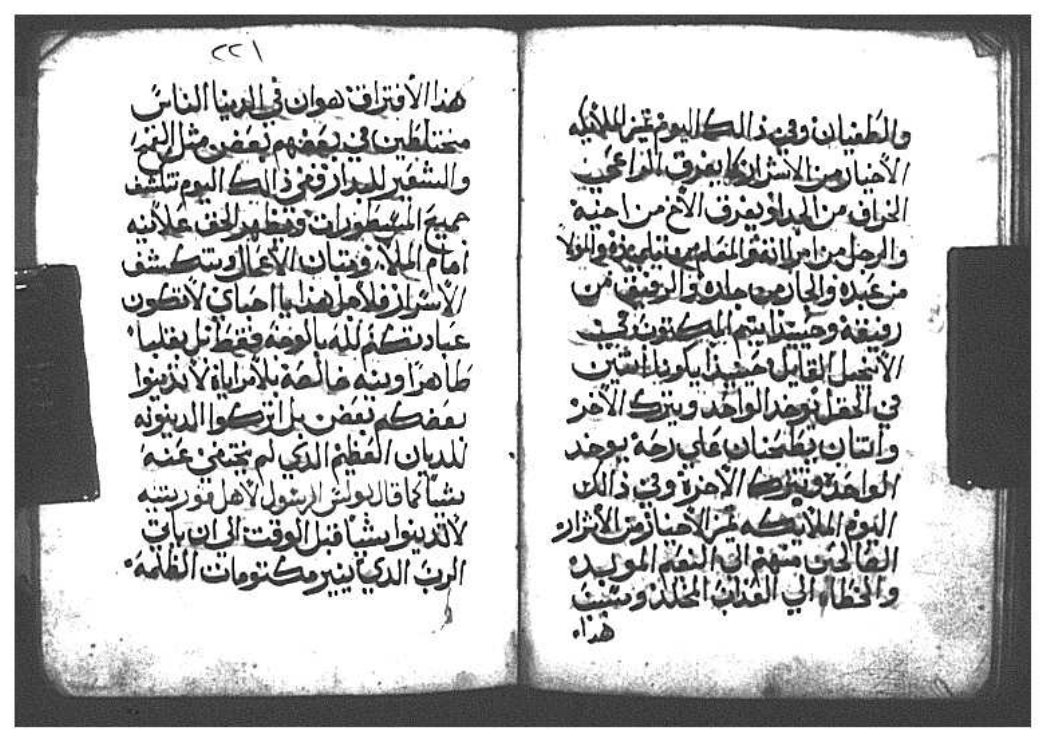 والطغيان وفي ذالك اليوم تميز الملايكه
الاخيار من الاشرار كما يفرق الراعي
الخراف من الجدا ويفرق الاخ من اخيه
والرجل من امراته والمعلم من تلميذه والمولا
من عبده والجار من جاره والرفيق من
رفيقه وحينيذا يتم المكتوب في
الانجيل القايل حينيذا يكونا اثنين
في الحقل يوخد الواحد ويترك الاخر
واثنتان يطحنان علي رحة يوخد
الواحده وتترك الاخرة وفي ذالك
اليوم الملايكه تميز الاخيار من الاشرار
الصالحين منهم الي النعيم الموبد
والخطاه الي العذاب المخلد وسبب
هذا
٢٢١
هذا الافتراق هوان في الدنيا الناس
مختلطين في بعضهم بعض مثل القمح
والشعير للبدار وفي ذالك اليوم تنكشف
جميع المسطورات وتظهر الخفيه علانيه
امام الملا وتبان الاعمال وتنكشف
الاسرار فلاجل هذا يا احباي لا تكون
عبادتكم لله بالوجه فقط بل بقلب
طاهرا ونيه خالصة بلا مراياة لا تدينوا
بعضكم بعض بل اتركوا الدينونه
للديان العظيم الذي لم يختفي عنه
شيا كما قال بولس الرسول لاهل قورنتيه
لا تدينوا بشيا قبل الوقت الي ان ياتي
الرب الدي ينير مكتومات الظلمه